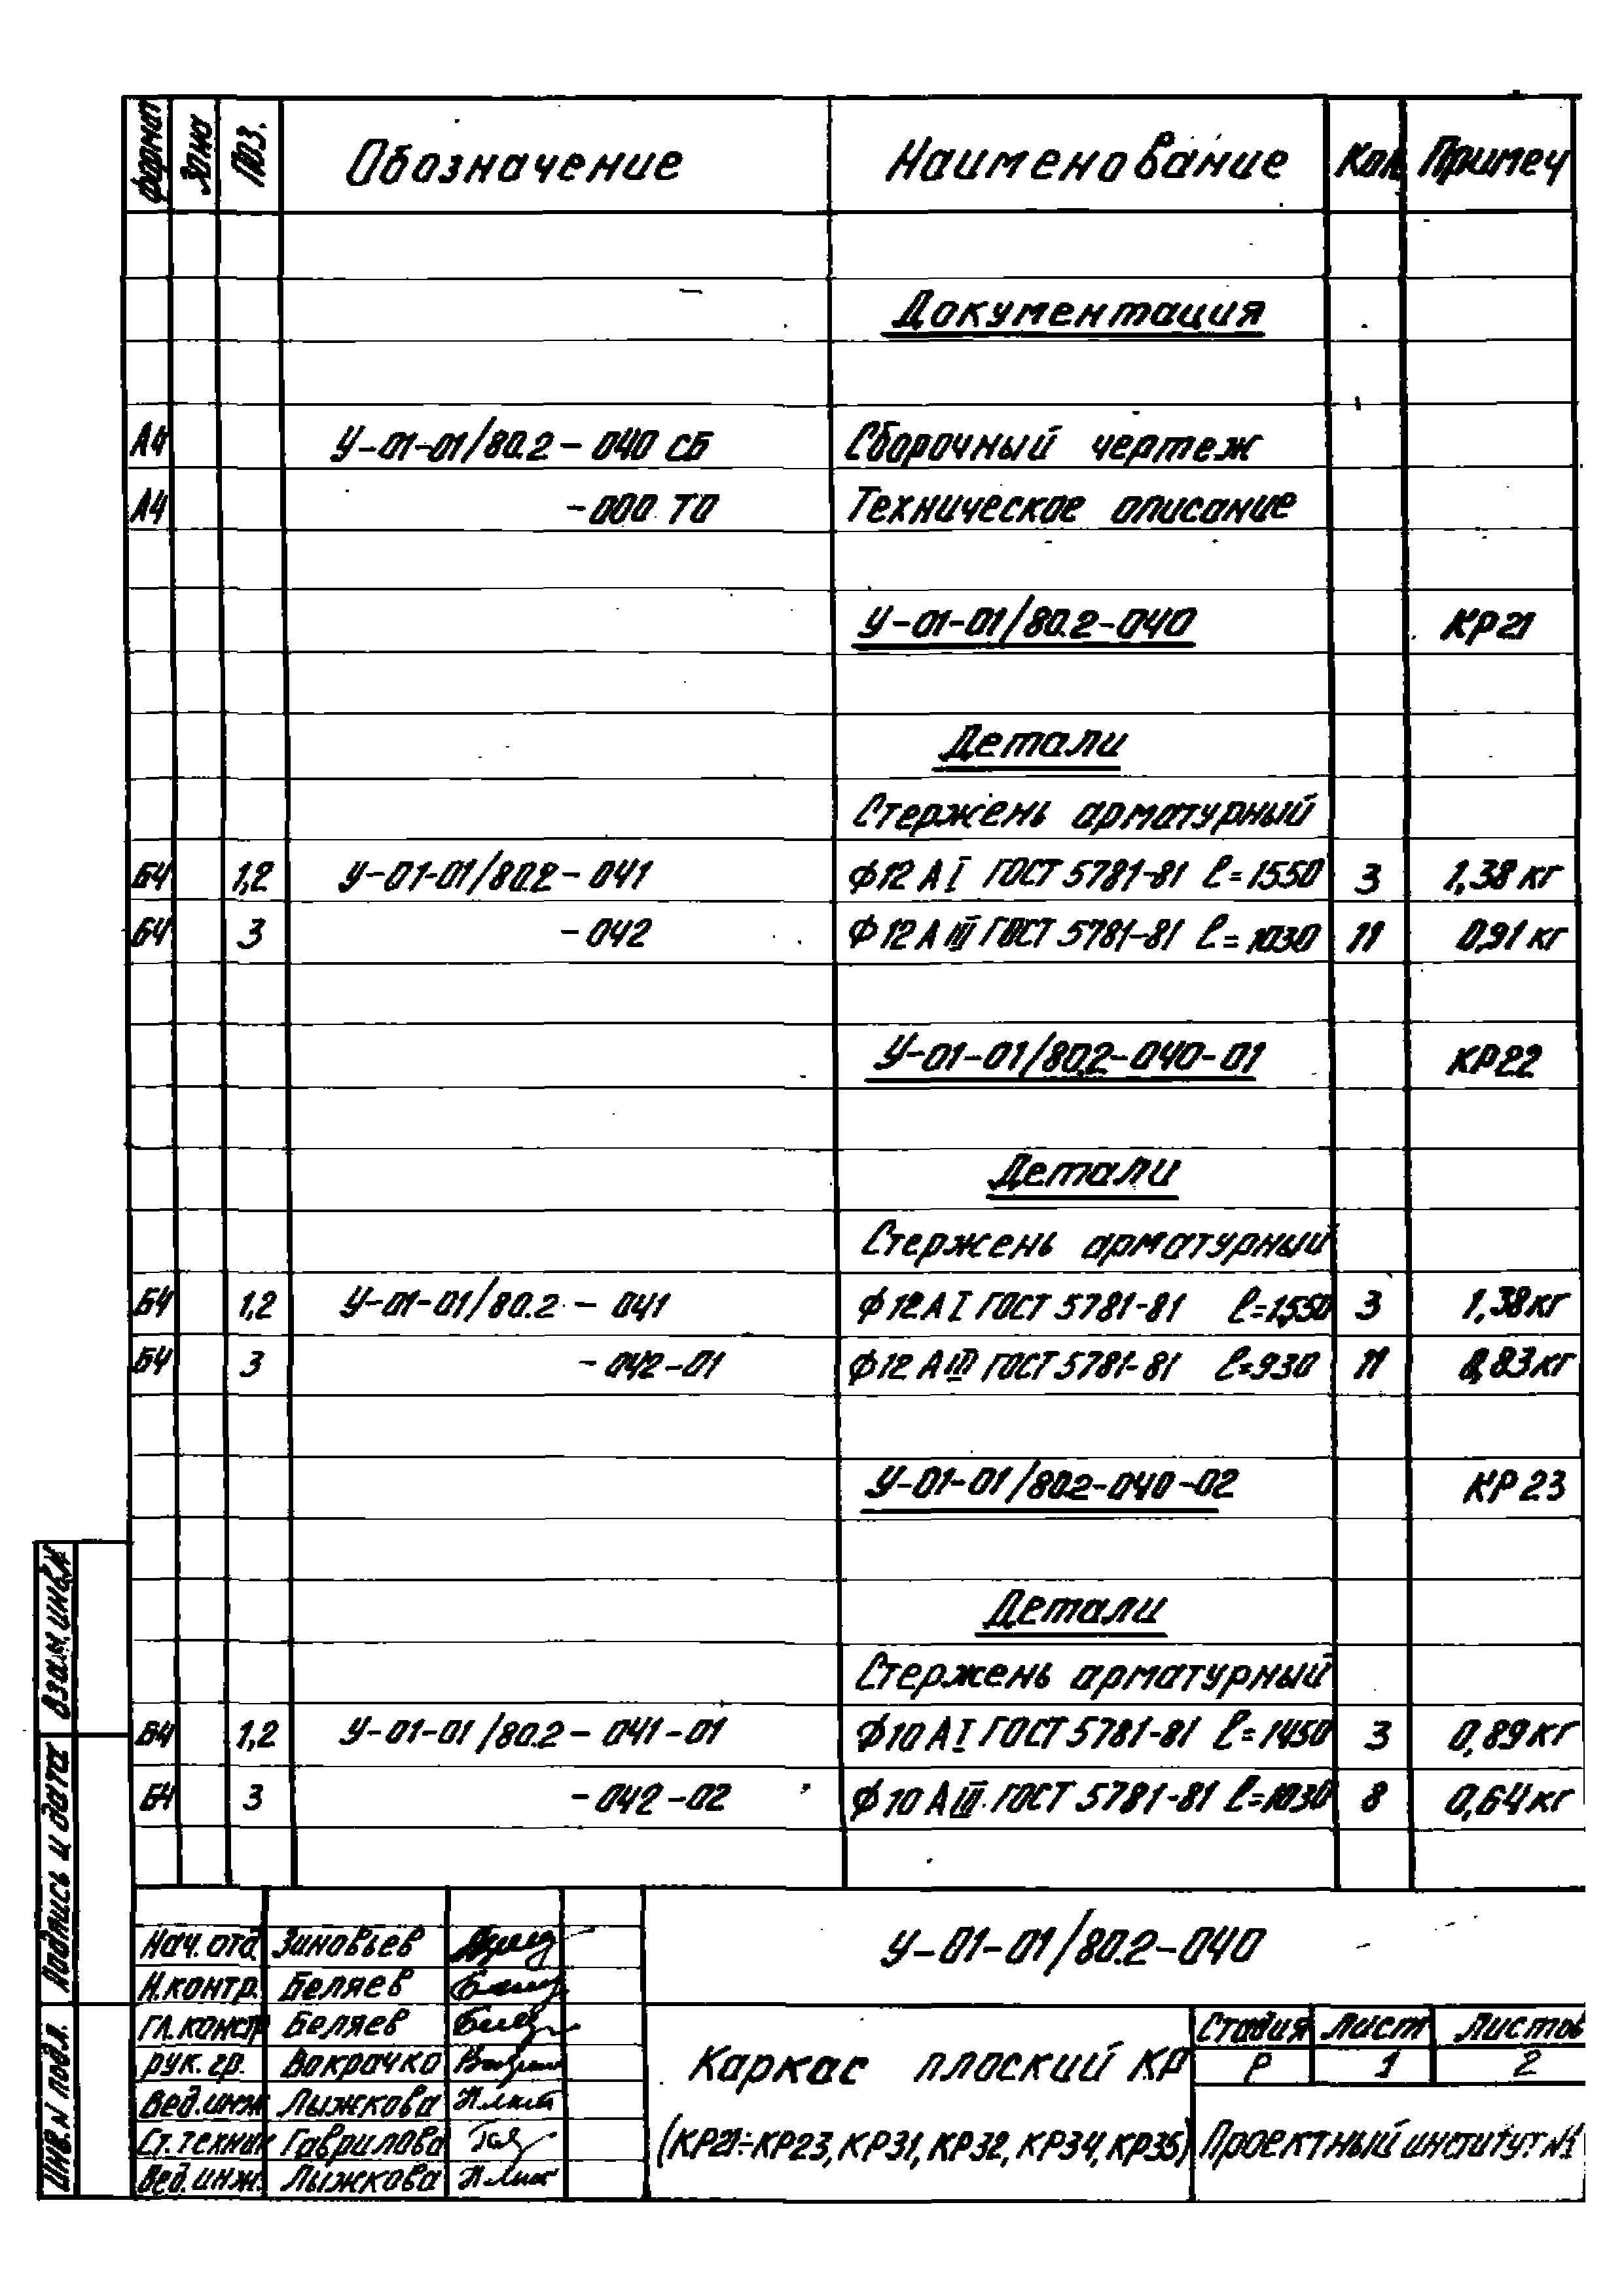 Формат Зона Поз. Обозначение Наименование Кол Примеч
Документация
А4 У-01-01/80.2-040 СБ Сборочный чертеж
А4 -000 ТО Техническое описание
У-01-01/80.2-040 КР21
Детали
Стержень арматурный
Б4 1,2 У-01-01/80.2-041 Ф12 АI ГОСТ 5781-81 ℓ=1550 3 1,38 кг
Б4 3 -042 Ф12 АIII ГОСТ 5781-81 ℓ=1030 11 0,91 кг
У-01-01/80.2-040-01 КР22
Детали
Стержень арматурный
Б4 1,2 У-01-01/80.2-041 Ф12 АI ГОСТ 5781-81 ℓ=1550 3 1,38 кг
Б4 3 -042-01 Ф12 АIII ГОСТ 5781-81 ℓ=930 11 0,83 кг
У-01-01/80.2-040-02 КР23
Детали
Стержень арматурный
Б4 1,2 У-01-01/80.2-041-01 Ф10 АI ГОСТ 5781-81 ℓ=1450 3 0,89 кг
Б4 3 -042-02 Ф10 АIII ГОСТ 5781-81 ℓ=1030 8 0,64 кг
Взам. инв. N
Подпись и дата
Инв. N подл.
Нач. отд. Зиновьев
Н. контр. Беляев
Гл. констр Беляев
Рук. гр. Вокрачко
Вед. инж Лыжкова
Ст. техник Гаврилова
Вед. инж. Лыжкова
У-01-01/80.2-040
Каркас плоский КР
(КР21÷КР23, КР31, КР32, КР34, КР35)
Стадия Лист Листов
Р 1 2
Проектный институт N1